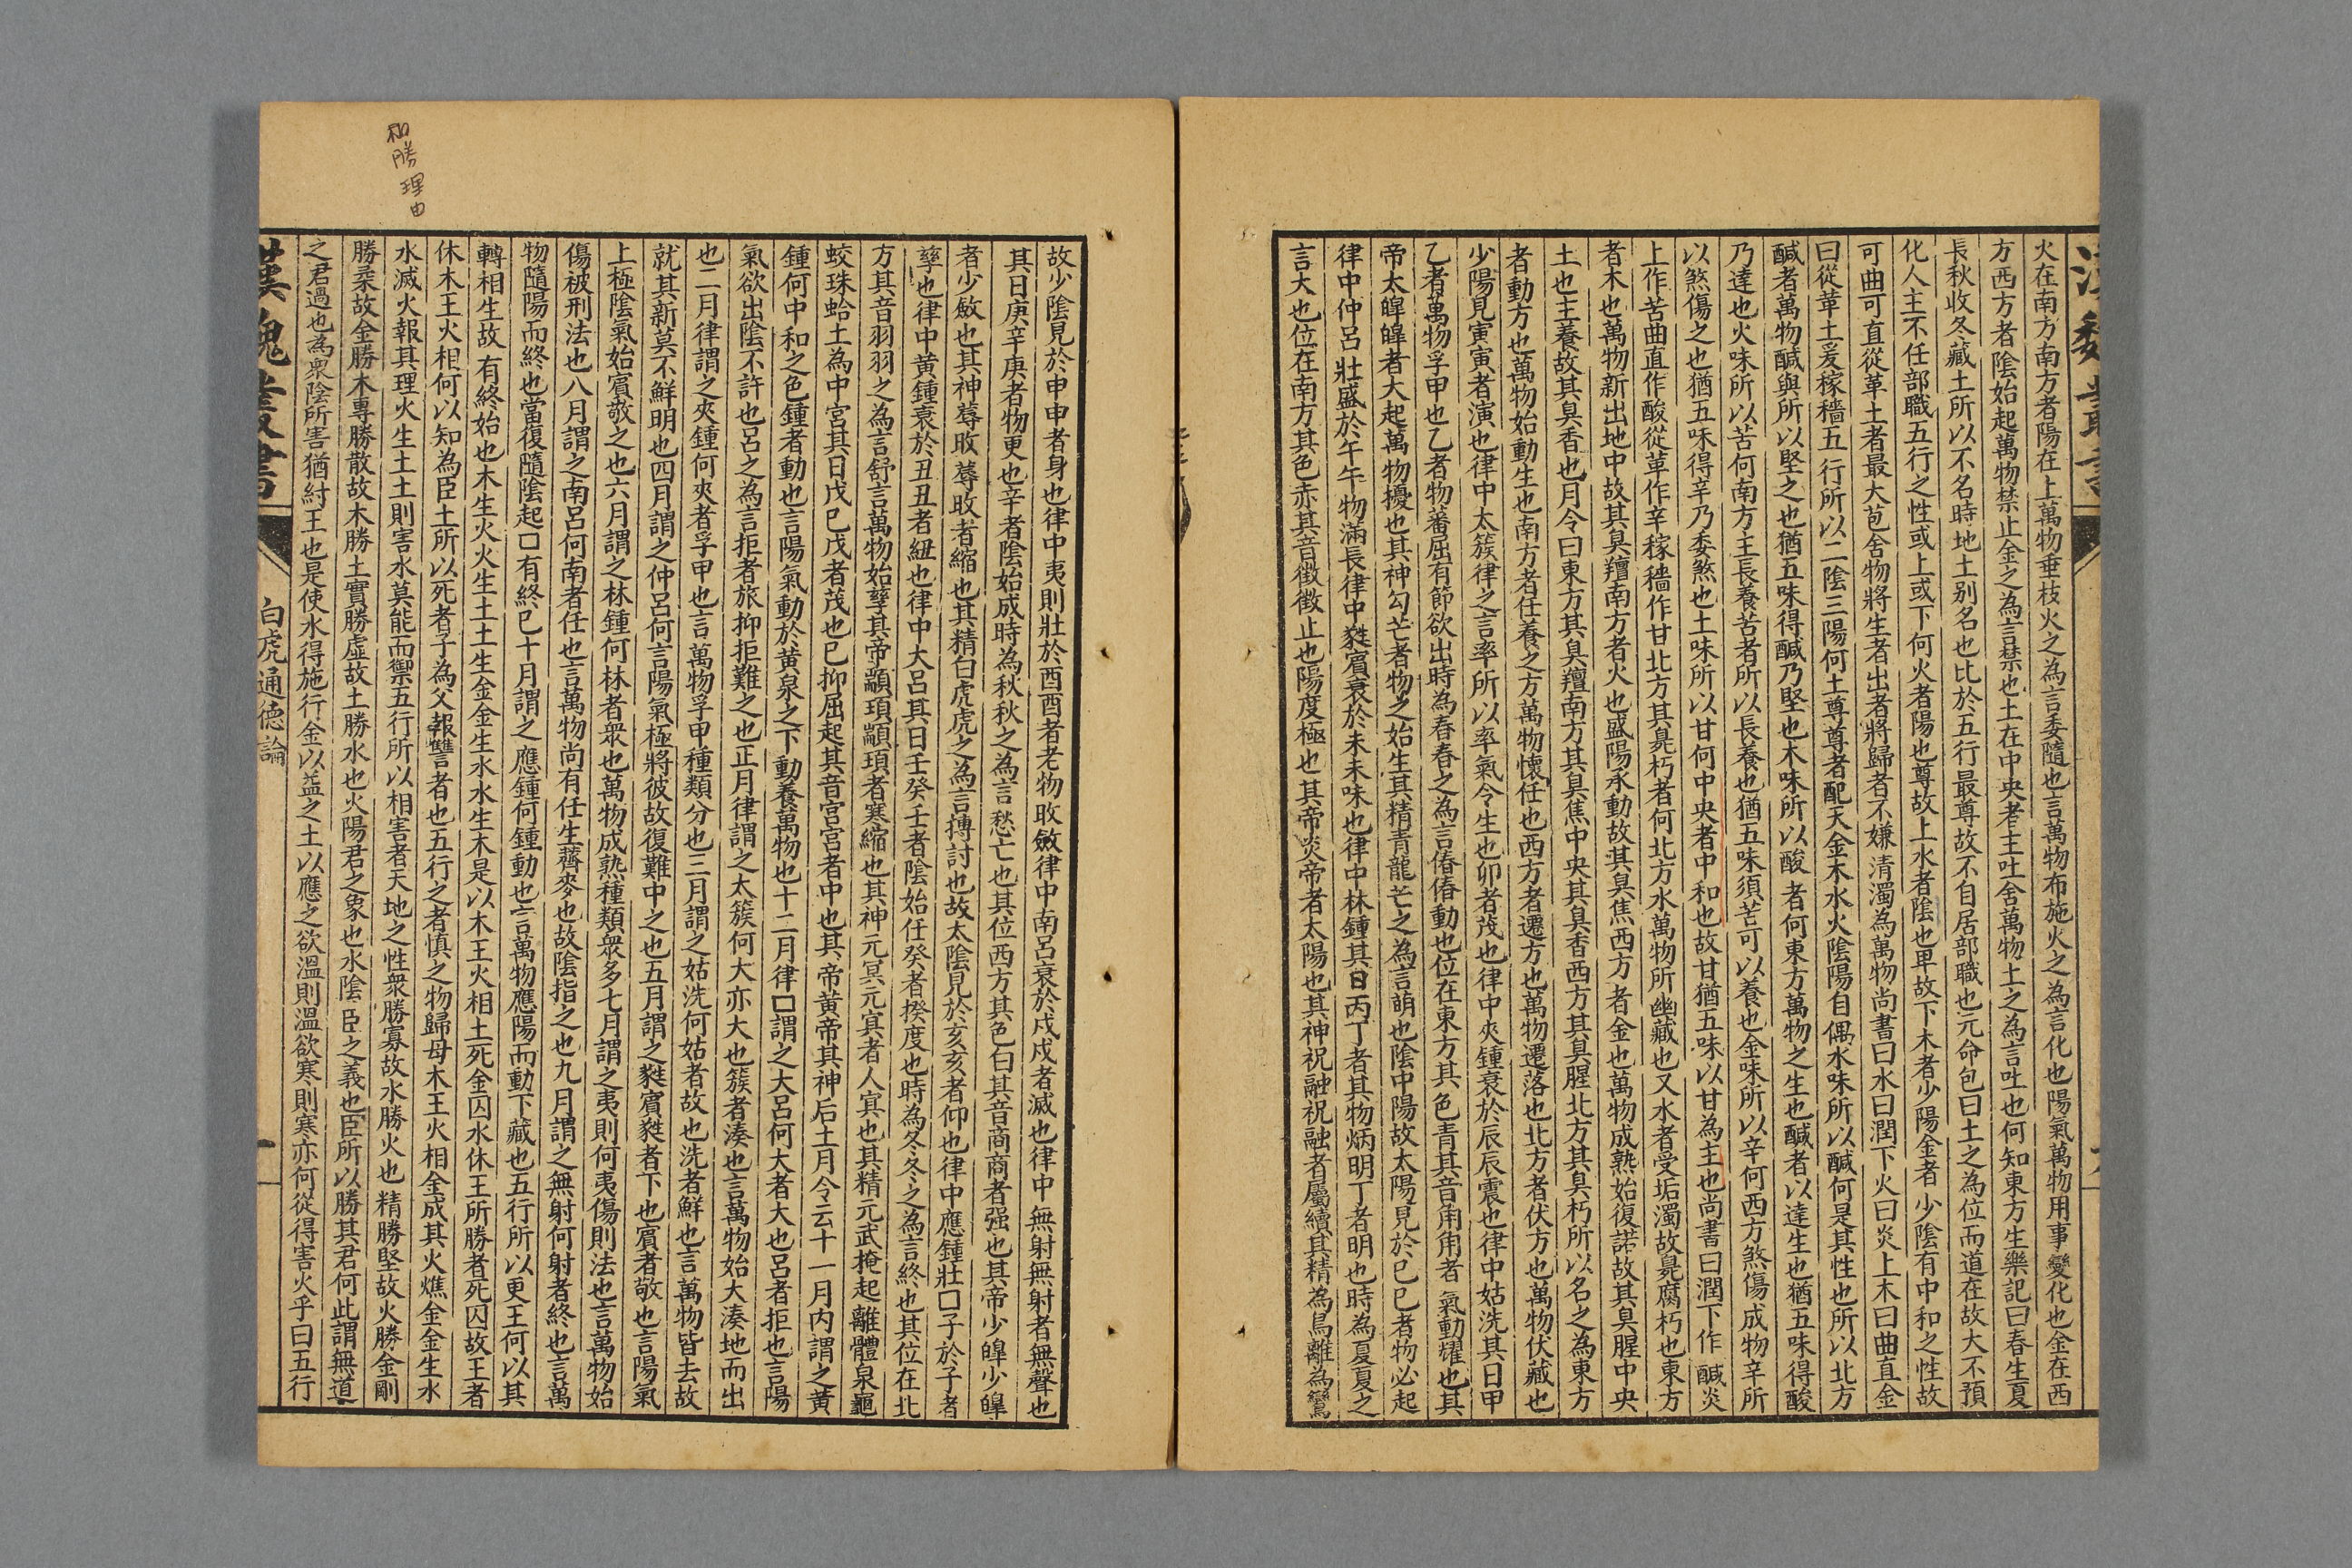 漢魏叢書
火在南方南方者陽在上萬物垂枝火之為言委隨也言萬物布施火之為言化也陽氣萬物用事變化也金在西
方西方者陰始起萬物禁止金之為言禁也土在中央者主吐舍萬物土之為言吐也何知東方生樂記曰春生夏
長秋收冬藏土所以不名時地土別名也比於五行最尊故不自居部職也元命包曰土之為位而道在故大不預
化人主不任部職五行之性或上或下何火者陽也尊故上水者陰也卑故下木者少陽金者少陰有中和之性故
可曲可直從革土者最大苞舍物將生者出者將歸者不嫌清濁為萬物尚書曰水曰潤下火曰炎上木曰曲直金
曰從革土爰稼穡五行所以二陰三陽何土尊尊者配天金木水火陰陽自偶水味所以鹹何是其性也所以北方
鹹者萬物鹹與所以堅之也猶五味得鹹乃堅也木味所以酸者何東方萬物之生也鹹者以達生也猶五味得酸
乃達也火味所以苦何南方主長養苦者所以長養也猶五味須苦可以養也金味所以辛何西方煞傷成物辛所
以煞傷之也猶五味得辛乃委煞也土味所以甘何中央者中和也故甘猶五味以甘為主也尚書曰潤下作鹹炎
上作苦曲直作酸從革作辛稼穡作甘北方其臭朽者何北方水萬物所幽藏也又水者受垢濁故臭腐朽也東方
者木也萬物新出地中故其臭羶南方者火也盛陽承動故其臭焦西方者金也萬物成熟始復諾故其臭腥中央
土也主養故其臭香也月令曰東方其臭羶南方其臭焦中央其臭香西方其臭腥北方其臭朽所以名之為東方
者動方也萬物始動生也南方者任養之方萬物懷任也西方者遷方也萬物遷落也北方者伏方也萬物伏藏也
少陽見寅寅者演也律中太簇律之言率所以率氣令生也卯者茂也律中夾鍾衰於辰辰震也律中姑洗其日甲
乙者萬物孚甲也乙者物蕃屈有節欲出時為春春之為言偆偆動也位在東方其色青其音角角者氣動耀也其
帝太皞皞者大起萬物擾也其神勾芒者物之始生其精青龍芒之為言萌也陰中陽故太陽見於巳巳者物必起
律中仲呂壯盛於午午物滿長律中蕤賓衰於未未味也律中林鍾其日丙丁者其物炳明丁者明也時為夏夏之
言大也位在南方其色赤其音徵徵止也陽度極也其帝炎帝者太陽也其神祝融祝融者屬續其精為鳥離為鸞
故少陰見於申申者身也律中夷則壯於酉酉者老物收斂律中南呂衰於戌戌者滅也律中無射無射者無聲也
其日庚辛庚者物更也辛者陰始成時為秋秋之為言愁亡也其位西方其色白其音商商者强也其帝少皞少皞
者少斂也其神蓐收蓐收者縮也其精白虎虎之為言搏討也故太陰見於亥亥者仰也律中應鍾壯口子於子者
孳也律中黄鍾衰於丑丑者紐也律中大呂其日壬癸壬者陰始任癸者揆度也時為冬冬之為言終也其位在北
方其音羽羽之為言舒言萬物始孳其帝顓頊顓頊者寒縮也其神元冥元冥者人冥也其精元武掩起離體泉龜
蛟珠蛤土為中宮其日戊己戊者茂也己抑屈起其音宮宮者中也其帝黄帝其神后土月令云十一月内謂之黄
鍾何中和之色鍾者動也言陽氣動於黄泉之下動養萬物也十二月律口謂之大呂何大者大也呂者拒也言陽
氣欲出陰不許也呂之為言拒者旅抑拒難之也正月律謂之太簇何大亦大也簇者湊也言萬物始大湊地而出
也二月律謂之夾鍾何夾者孚甲也言萬物孚甲種類分也三月謂之姑洗何姑者故也洗者鮮也言萬物皆去故
就其新莫不鮮明也四月謂之仲呂何言陽氣極將彼故復難中之也五月謂之蕤賓蕤者下也賓者敬也言陽氣
上極陰氣始賓敬之也六月謂之林鍾何林者衆也萬物成熟種類衆多七月謂之夷則何夷傷則法也言萬物始
傷被刑法也八月謂之南呂何南者任也言萬物尚有任生薺麥也故陰指之也九月謂之無射何射者終也言萬
物隨陽而終也當復隨陰起口有終已十月謂之應鍾何鍾動也言萬物應陽而動下藏也五行所以更王何以其
轉相生故有終始也木生火火生土土生金金生水水生木是以木王火相土死金囚水休王所勝者死囚故王者
休木王火相何以知為臣土所以死者子為父報讐者也五行之者慎之物歸母木王火相金成其火燋金金生水
水滅火報其理火生土土則害水莫能而禦五行所以相害者天地之性衆勝寡故水勝火也精勝堅故火勝金剛
勝柔故金勝木專勝散故木勝土實勝虚故土勝水也火陽君之象也水陰臣之義也臣所以勝其君何此謂無道
之君遇也為衆陰所害猶紂王也是使水得施行金以蓋之土以應之欲溫則溫欲寒則寒亦何從得害火乎曰五行
漢魏叢書
白虎通德論
和勝理由